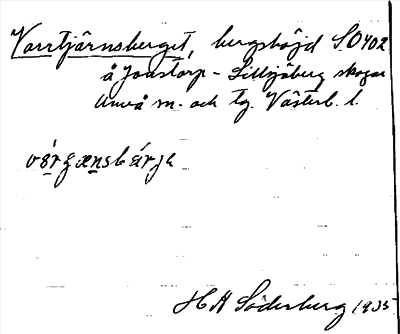 Vorrtjärnsberget, bergshöjd SO402
å Jonstorp - Lillsjöberg skogar
Umeå sn. och tg. Västerb. l.
H A Söderberg 1935